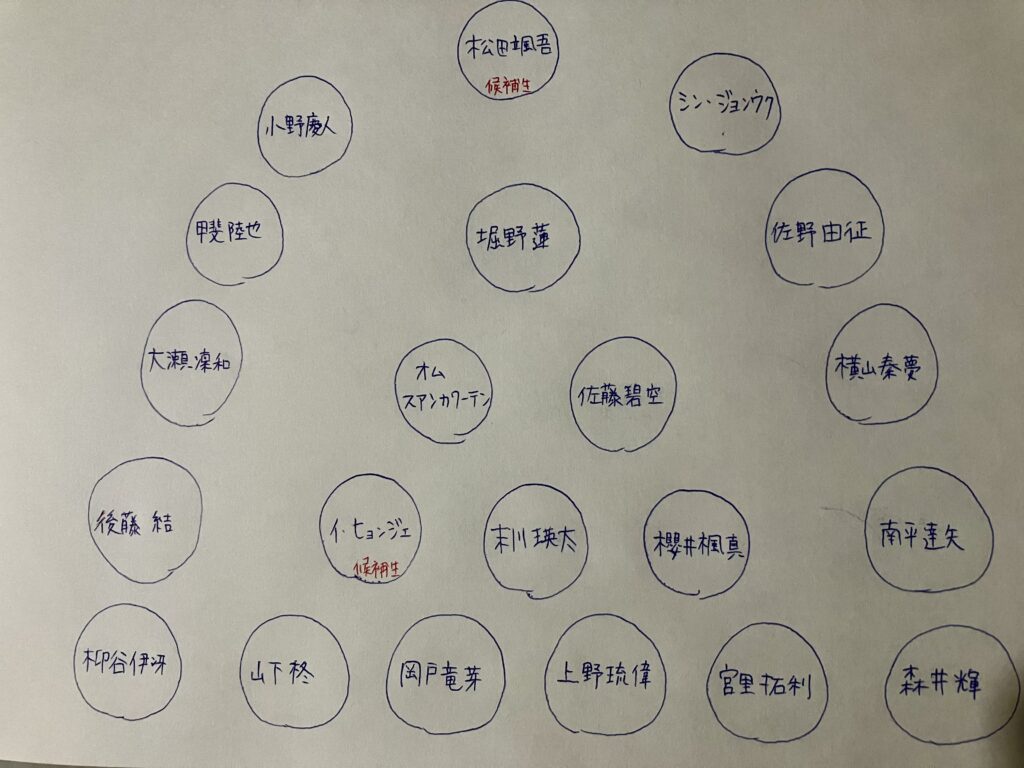 松田颯吾
候補生
小野慶人
シン・ジョンウク
甲斐陸也
堀野蓮
佐野由征
大瀬凜和
オム
スアンカワーテン
佐藤碧空
横山秦夢
後藤結
イ・ヒョンジェ
候補生
末川瑛太
櫻井楓真
南平達矢
柳谷伊冴
山下柊
岡戸竜芽
上野琉偉
宮里拓利
森井輝